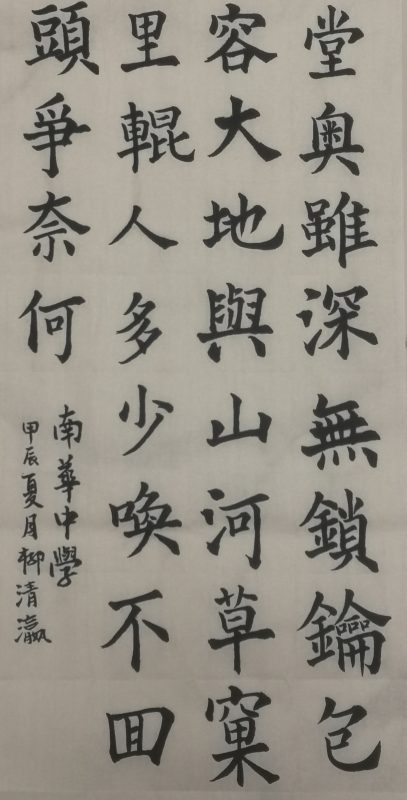 堂奥雖深無鎖鑰包
容大地與山河草窠
里輥人多少喚不回
頭爭奈何
南華中學
甲辰夏月柳清瀛